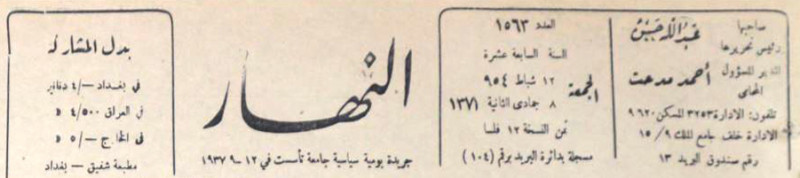 صاحبها
رئيس تحريرها
عبد الله حسن
المدير المسؤول
أحمد مدحت
المحامي
تلفون: الادارة ٣٢٥٣ المسكن ٩٦٢٠
الادارة خلف جامع الملك ٩ / ١٥
رقم صندوق البريد ١٣
العدد ١٥٦٣
السنة السابعة عشرة
الجمعة
١٢ شباط ٩٥٤
٨ جمادى الثانية ١٣٧١
ثمن النسخة ١٢ فلسا
مسجلة بدائرة البريد برقم (١٠٤)
النهار
جريدة يومية سياسية جامعة تأسست في ١٢ - ٩ - ١٩٣٧
بدل المشاركة
في بغداد -/٤ دنانير
في العراق ٤/٥٠٠ »
في الخارج -/٥ »
مطبعة شفيق - بغداد